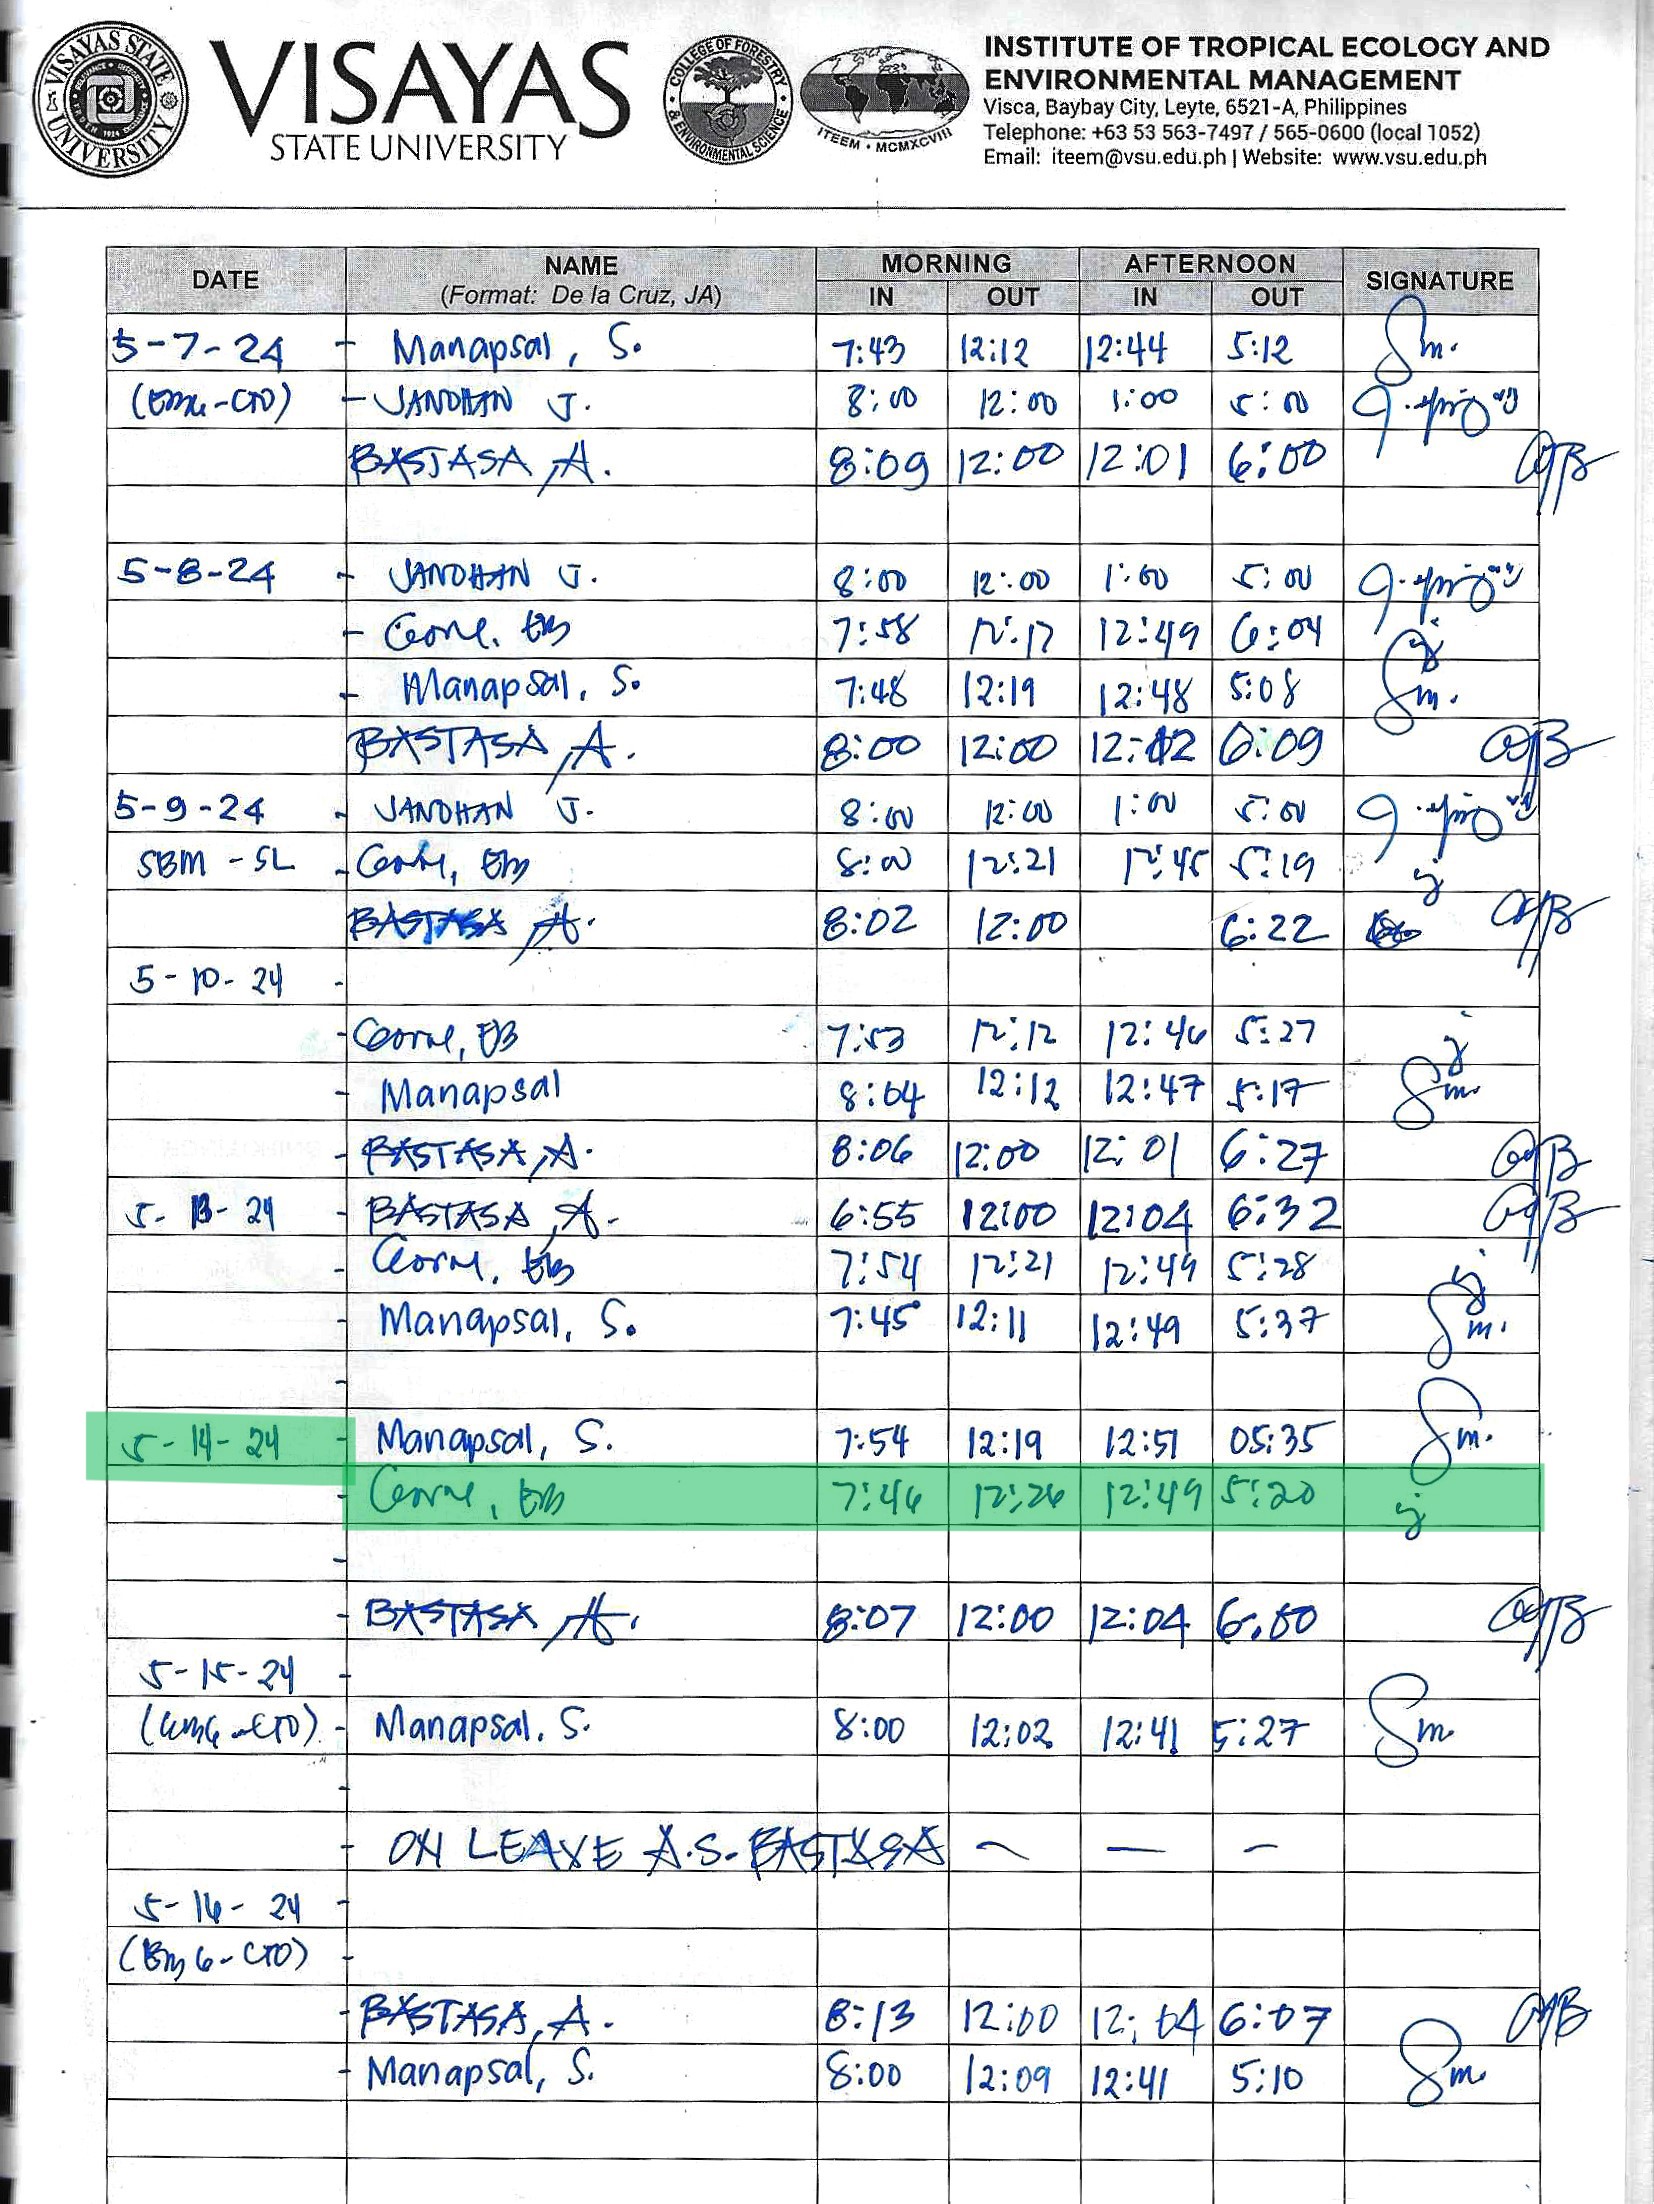 VISAYAS
STATE UNIVERSITY
VISAYAS STATE UNIVERSITY
COLLEGE OF FORESTRY & ENVIRONMENTAL SCIENCE
ITEEM • MCMXCVIII
INSTITUTE OF TROPICAL ECOLOGY AND
ENVIRONMENTAL MANAGEMENT
Visca, Baybay City, Leyte, 6521-A, Philippines
Telephone: +63 53 563-7497 / 565-0600 (local 1052)
Email: iteem@vsu.edu.ph | Website: www.vsu.edu.ph
DATE NAME MORNING AFTERNOON SIGNATURE
(Format: De la Cruz, JA) IN OUT IN OUT
5-7-24 - Manapsal, S. 7:43 12:12 12:44 5:12 Sm.
- JANDHAN J. 8:00 12:00 1:00 5:00
BASTASA, A. 8:09 12:00 12:01 6:00
5-8-24 - JANDHAN J. 8:00 12:00 1:00 5:00
- EB 7:58 12:17 12:49 6:04
- Manapsal, S. 7:48 12:19 12:48 5:08 Sm.
BASTASA, A. 8:00 12:00 12:12 6:09
5-9-24 - JANDHAN J. 8:00 12:00 1:00 5:00
SBM - SL - EB 8:00 12:21 12:45 5:19
BASTASA A. 8:02 12:00 6:22
5-10-24 -
- EB 7:53 12:12 12:46 5:27
- Manapsal 8:04 12:12 12:47 5:17 Sm.
- BASTASA, A. 8:06 12:00 12:01 6:27
5-13-24 - BASTASA, A. 6:55 12:00 12:04 6:32
- EB 7:54 12:21 12:49 5:28
Manapsal, S. 7:45 12:11 12:49 5:37 Sm.
-
5-14-24 - Manapsal, S. 7:54 12:19 12:51 05:35 Sm.
- EB 7:46 12:26 12:49 5:20
-
- BASTASA, A. 8:07 12:00 12:04 6:00
5-15-24 -
- Manapsal, S. 8:00 12:02 12:41 5:27 Sm.
-
- ON LEAVE A.S. BASTASA - - -
5-16-24 -
-
- BASTASA, A. 8:13 12:00 12:04 6:07
- Manapsal, S. 8:00 12:09 12:41 5:10 Sm.